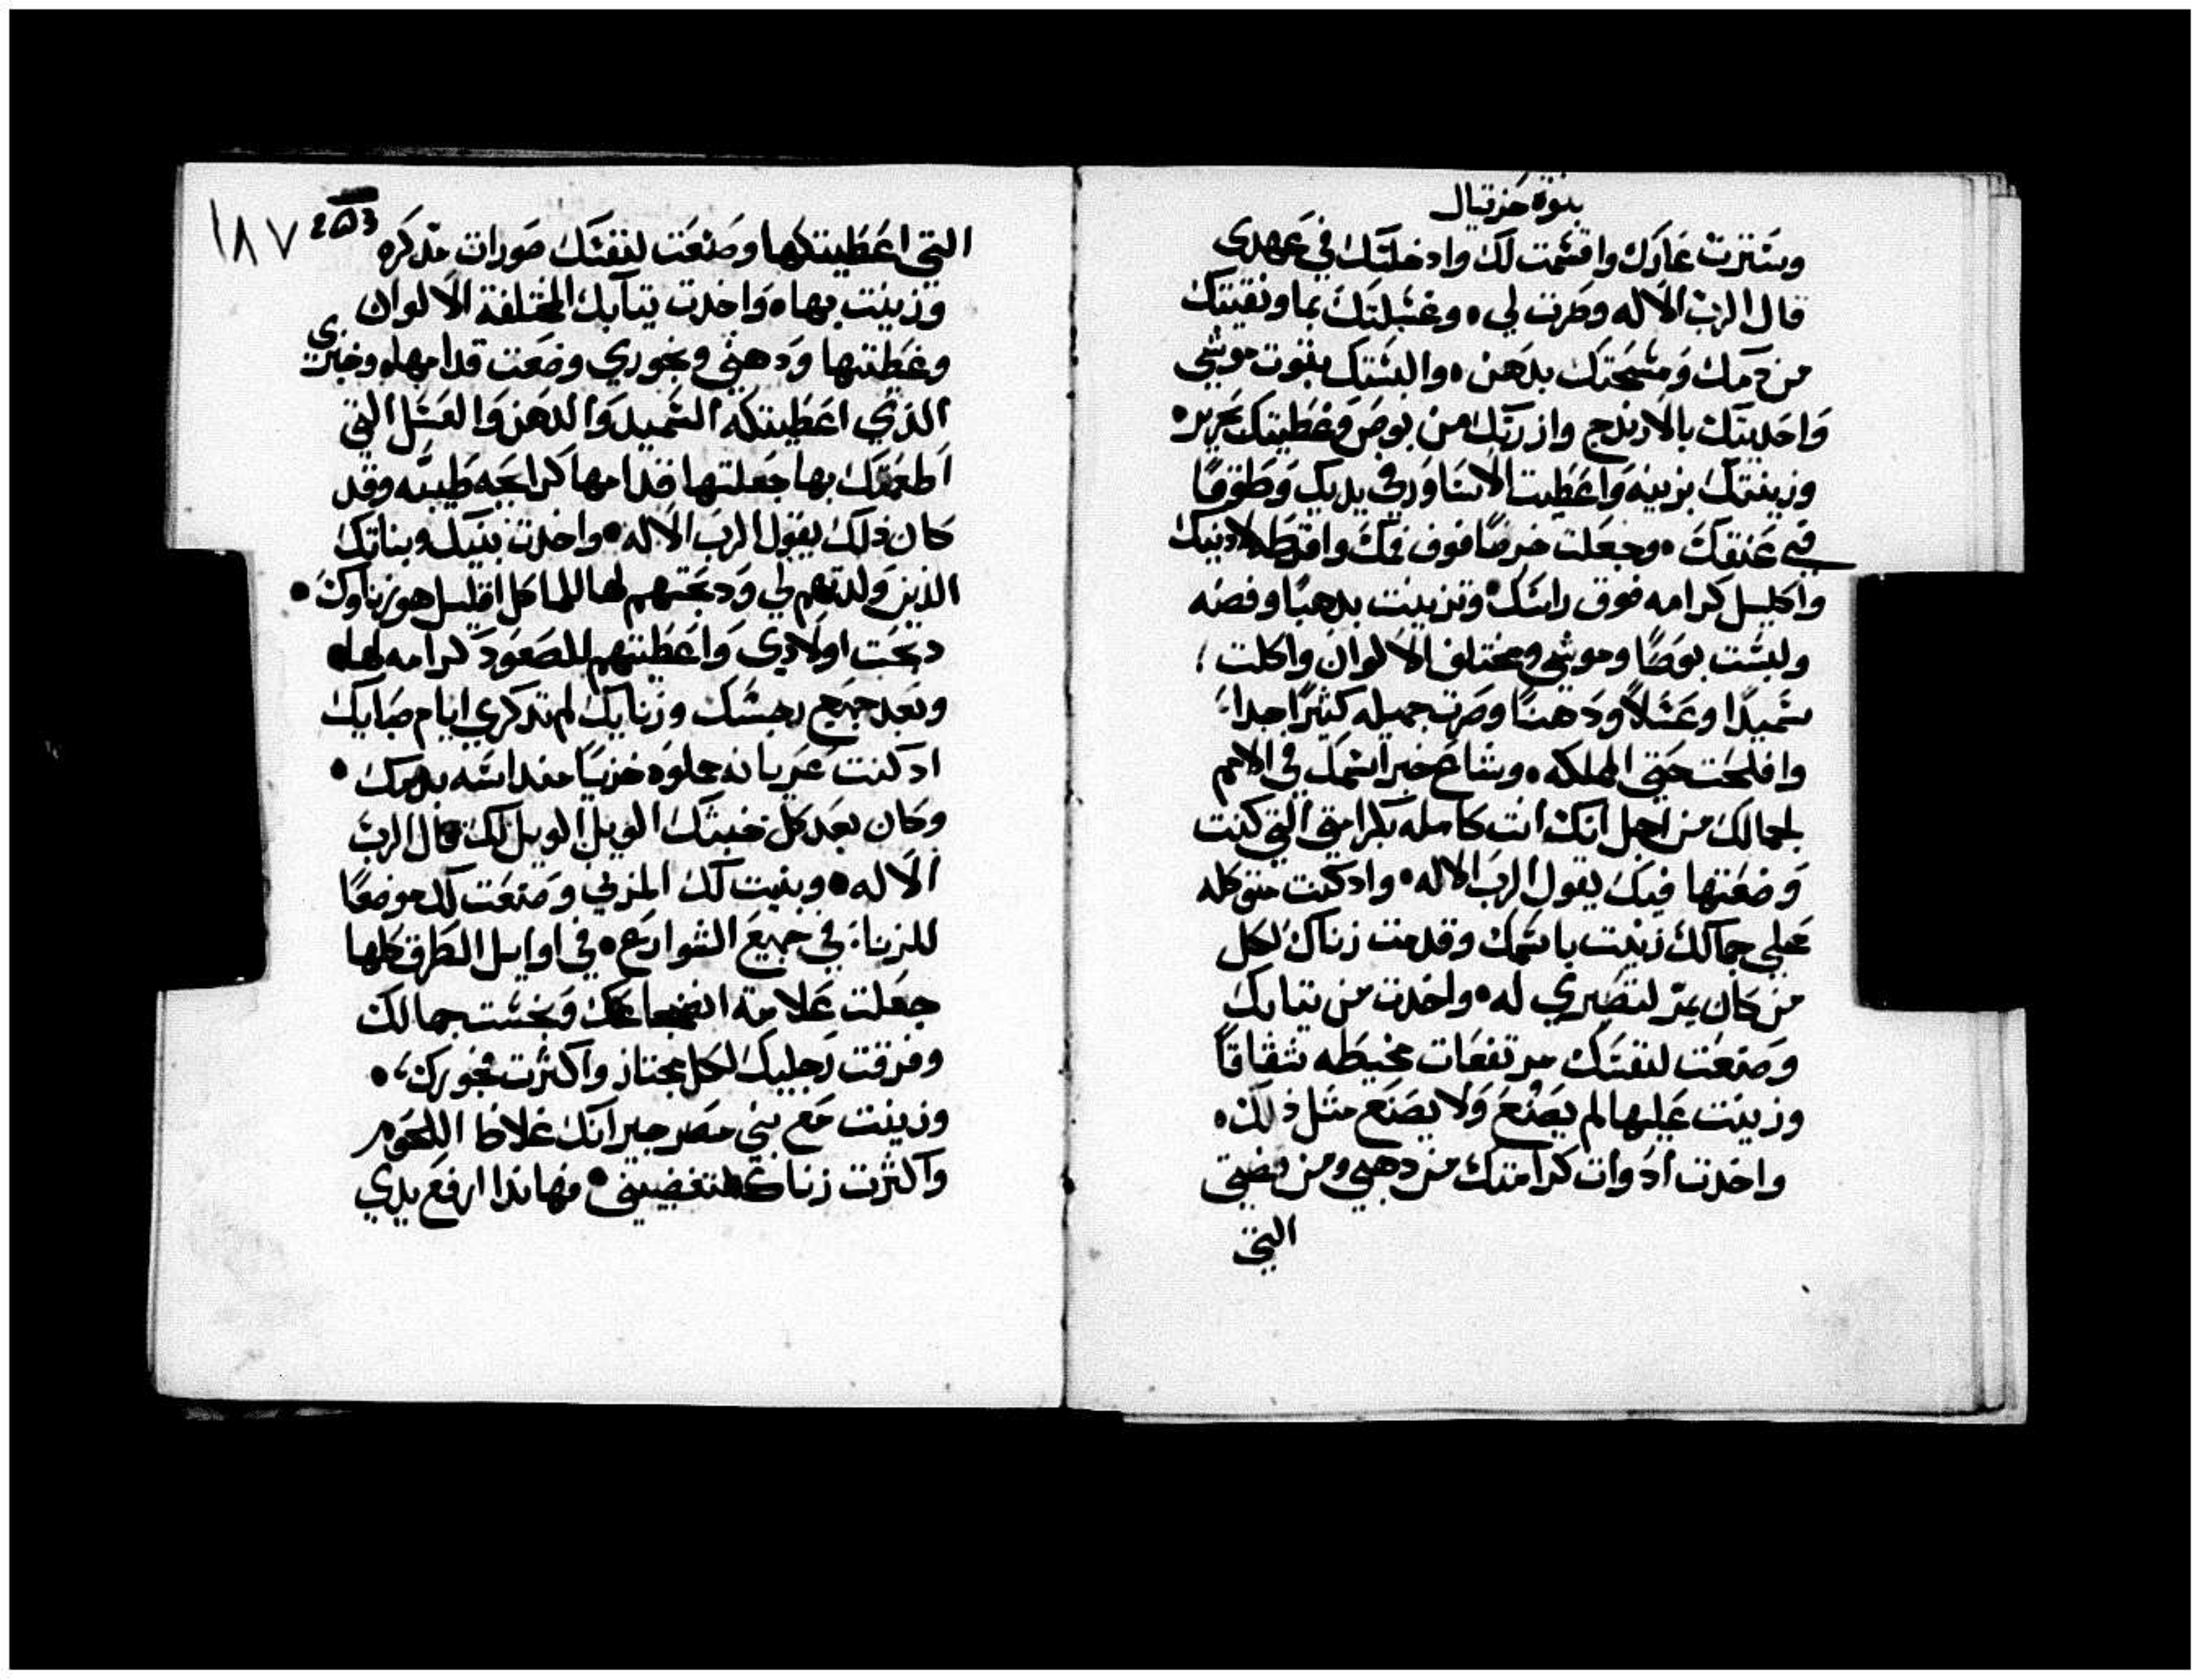 بنوة حزقيال
وسترت عارك واقسمت لك وادخلتك في عهدي
قال الرب الاله وصرت لي • وغسلتك بما ونقيتك
من دمك ومسحتك بدهن • والبستك بتوب موشي
واحديتك بالارندج وازرتك من بوص وغطيتك بحرير •
وزينتك بزينه واعطيت الاسناور في يديك وطوقا
في عنقك • وجعلت خرصا فوق فمك واقرطه لادنيك
واكليل كرامه فوق راسك • وتزينت بدهبا وفضه
ولبست بوصا وموشي ومختلف الالوان واكلت
سميدا وعسلا ودهنا وصرت جميله كتيرا جدا
وافلحت حتي المملكه • وشاع خبر اسمك في الامم
لجمالك من اجل انك انت كامله بكرامتي التي كنت
وضعتها فيك يقول الرب الاله • وادكنت متوكله
علي جمالك زنيت باسمك وقدمت زناك لكل
من كان يمر لتصيري له • واخدت من تيابك
وصنعت لنفسك مرتفعات مخيطه شقاقا
وزنيت عليها لم يصنع ولا يصنع متل دلك •
واخدت ادوات كرامتك من دهبي ومن فضتي
التي
١٨٧
التي اعطيتكها وصنعت لنفسك صورات مدكره
وزنيت بها • واخدت تيابك المختلفة الالوان
وغطيتها ودهني وبخوري وضعت قدامها • وخبزي
الذي اعطيتكه السميد والدهن والعسل التي
اطعمتك بها جعلتها قدامها كرايحه طيبه وقد
كان دلك يقول الرب الاله • واخدت بنيك وبناتك
الذين ولدتهم لي ودبحتهم لها للماكل اقليل هو زناوك •
دبحت اولادي واعطيتهم للصعود كرامه لها •
وبعد جميع رجسك وزنايك لم تدكري ايام صبايك
ادكنت عريانه مملوه خزيا مند اسه بدمك •
وكان بعد كل خبتك الويل الويل لك قال الرب
الاله • وبنيت لك المزني وصنعت لك موضعا
للزنا في جميع الشوارع • في اوايل الطرق كلها
جعلت علامة انضجاعك ونجست جمالك
وفرقت رجليك لكل مجتاز واكثرت فجورك •
وزنيت مع بني مصر جيرانك غلاظ اللحوم
واكثرت زناك لتغضبيني • فهاندا ارفع يدي